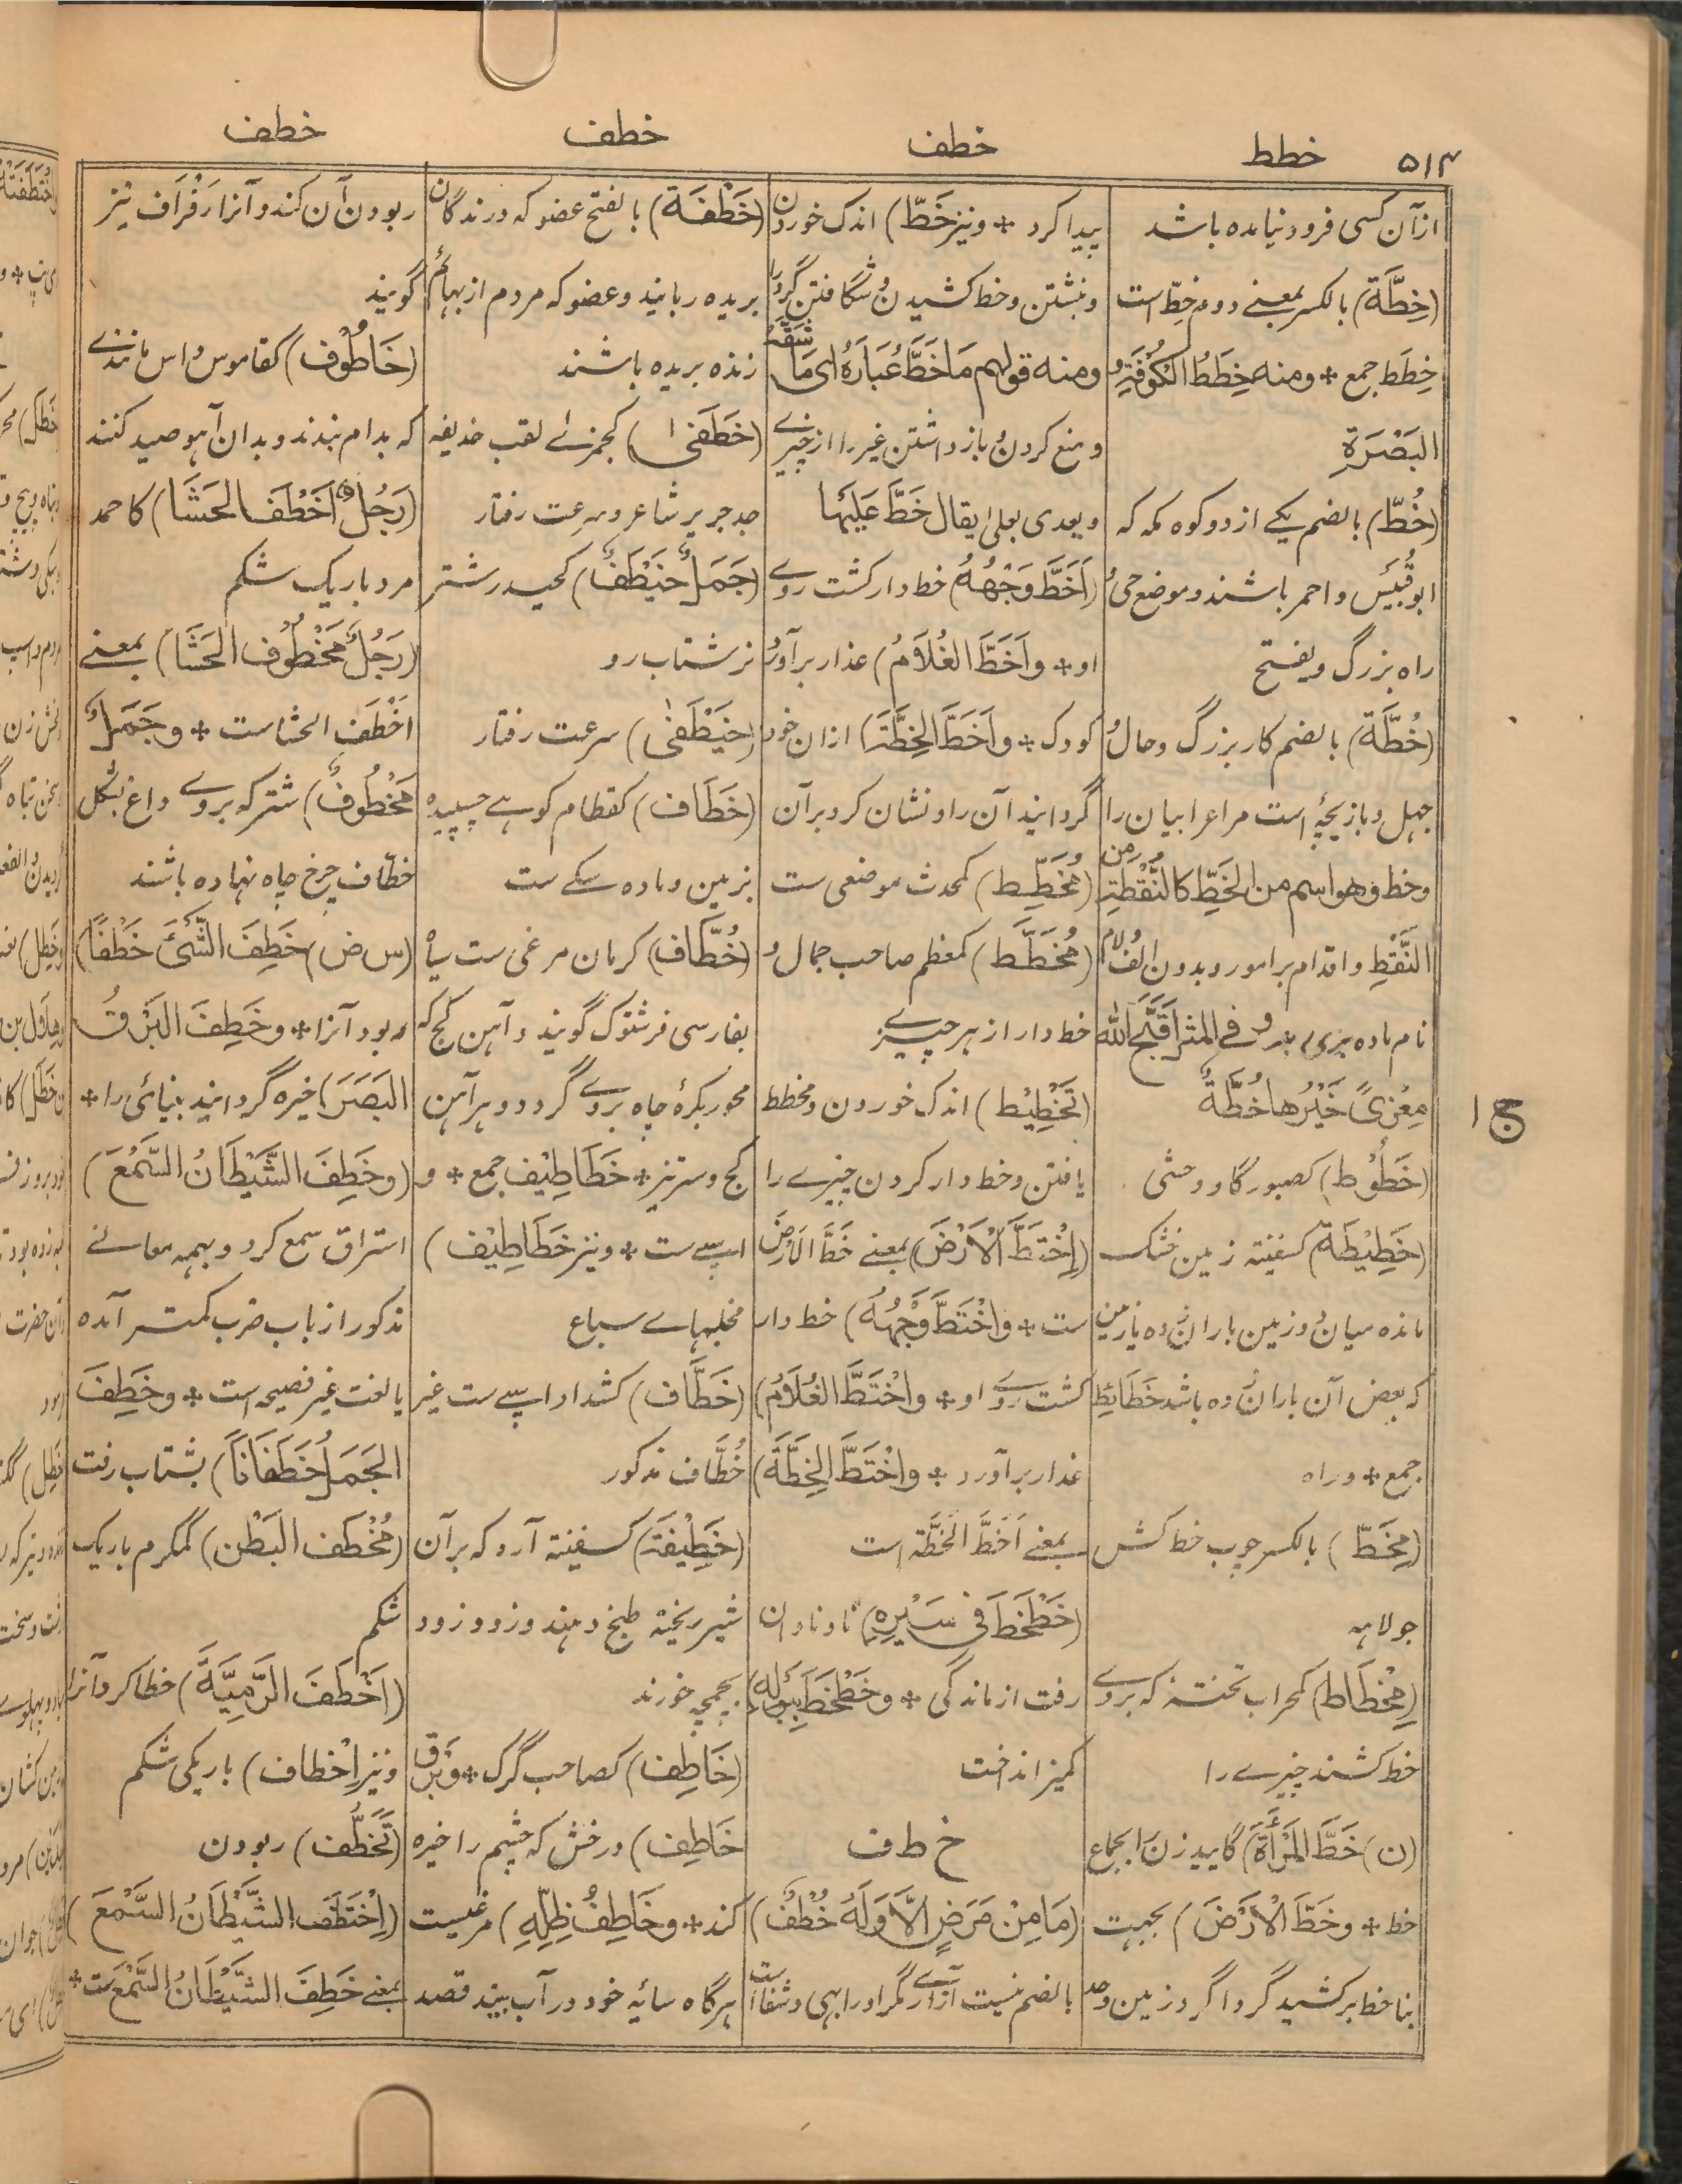 ۵۱۴
خطط
خطف
خطف
خطف
از آن کسی فرود نیامده باشد
(خِطَّة) بالکسر بمعنے دوم خِطّ است
خِطَط جمع * ومنه خِطَطُ الکُوْفَةِ و
البَصْرَةِ
(خُطّ) بالضم یکے از دو کوه مکه که
ابوقُبَیْس و احمر باشند و موضع حی و
راه بزرگ ویفتح
(خُطَّة) بالضم کار بزرگ و حال و
جهل و بازیچهٔ است مر اعرابیان را
وخط وهو اسم من الخَطِّ کالنُّقْطَةِ من
النَّقْطِ و اقدام بر امور و بدون الف و لام
نام ماده بزی و فی المثل قَبَّحَ الله
مِعْزیً خَیْرُها خُطَّةُ
(خَطُوْط) کصبور گاو وحشی
(خَطِیْطَة) کسفینة زمین خشک
مانده میان دو زمین باران زده یا زمین
که بعض آن باران زده باشد خَطَائِط
جمع * و راه
(مِخَطّ) بالکسر چوب خط کش
جولاہه
(مِخْطَاط) کمحراب تخته که بروے
خط کشند چیزے را
(ن) خَطَّ المَرْأَةَ) گایید زن را بجماع
خط * وخَطَّ الْاَرْضَ) بجهت
بنا خط بر کشید گرداگرد زمین وحد
پیدا کرد * ونیز خَطّ) اندک خوردن
و نبشتن وخط کشیدن و شگافتن گرد را
ومنه قولهم مَا خَطَّ غُبَارَهُ ای مَا شَقَّهُ
و منع کردن و باز داشتن غیر را از چیزے
ویعدی بعلی یقال خَطَّ عَلَیْها
(اَخَطَّ وَجْهُهُ) خط دار گشت روے
او * واَخَطَّ الغُلَامُ) عذار بر آورد
کودک * واَخَطَّ الخِطَّةَ) ازان خود
گردانید آن را و نشان کرد بر آن
(مُخَطِّط) کمحدث موضعی ست
(مُخَطَّط) کمعظم صاحب جمال و
خط دار از ہر چیز
(تَخْطِیْط) اندک خوردن و مخطط
یافتن و خط دار کردن چیزے را
(اِخْتَطَّ الْاَرْضَ) بمعنے خَطَّ الاَرْضَ
ست * واخْتَطَّ وَجْهُهُ) خط دار
گشت روے او * واخْتَطَّ الغُلَامُ)
عذار بر آورد * واخْتَطَّ الخِطَّةَ)
بمعنے اَخَطَّ الخِطَّة است
(خَطْخَطَ فی سَیْرِهِ) ناوناوان
رفت از ماندگی * وخَطْخَطَ بِبَوْلِهِ)
کمیز انداخت
خ ط ف
(مَا مِنْ مَرَضٍ اِلَّا وَلَهُ خُطْفٌ)
بالضم نیست آزارے مگر او را بهی و شفا است
(خَطْفَة) بالفتح عضو که درندگان
بریده ربایند و عضو که مردم از بهائم
زنده بریده باشند
(خَطَفَیٰ) کجمزیٰ لقب حذیفه
جد جریر شاعر و سرعت رفتار
(جَمَلٌ خَیْطَفٌ) کحیدر شتر
نر شتاب رو
(خَیْطَفیٰ) سرعت رفتار
(خَطَاف) کقطام کوہے چسپیده
بزمین و ماده سگے ست
(خُطَّاف) کرمان مرغی ست سیاه
بفارسی فرشتوک گویند و آهن کج که
محور بکرهٔ چاه بروے گردد و ہر آہن
کج و ستیز * خَطَاطِیْف جمع * و
اسپے ست * ونیز خَطَاطِیْف)
مخلبہاے سباع
(خَطَّاف) کشداد اسپے ست غیر
خُطَّاف مذکور
(خَطِیْفَة) کسفینة آرد که بر آن
شیر ریخته طبخ دهند و زود زود
بچمچه خورند
(خَاطِف) کصاحب گرگ * وبَرْق
خَاطِف) درخش که چشم را خیره
کند * وخَاطِفُ ظِلِّهِ) مرغیست
ہرگاه سایهٔ خود در آب بیند قصد
ربودن آن کند و آنرا رَفْرَاف نیز
گویند
(خَاطُوْف) کقاموس داس مانندے
که بدام بندند و بدان آہو صید کنند
(رَجُلٌ اَخْطَف الحَشَا) کاحمد
مرد باریک شکم
(رَجُلٌ مَخْطُوْف الحَشَا) بمعنے
اَخْطَف الحشا ست * وجَمَلٌ
مَخْطُوْفٌ) شتر که بروے داغ بشکل
خطّاف چرخ چاه نهاده باشند
(س ض) خَطِفَ الشَّیْئَ خَطْفًا)
ربود آنرا * وخَطِفَ البَرْقُ
البَصَرَ) خیره گردانید بینائی را *
(وخَطِفَ الشَّیْطَانُ السَّمْعَ)
استراق سمع کرد و بہمه معانے
مذکور از باب ضرب کمتر آمده
یا لغت غیر فصیحه است * وخَطِفَ
الجَمَلُ خَطَفَاناً) بشتاب رفت
(مُخْطَف البَطْن) کمکرم باریک
شکم
(اَخْطَفَ الرَّمِیَّةَ) خطا کرد آنرا
ونیز اِخْطاف) باریکی شکم
(تَخَطُّف) ربودن
(اِخْتَطَفَ الشَّیْطَانُ السَّمْعَ)
بمعنے خَطِفَ الشَّیْطَانُ السَّمْعَ ست *
ج ۱